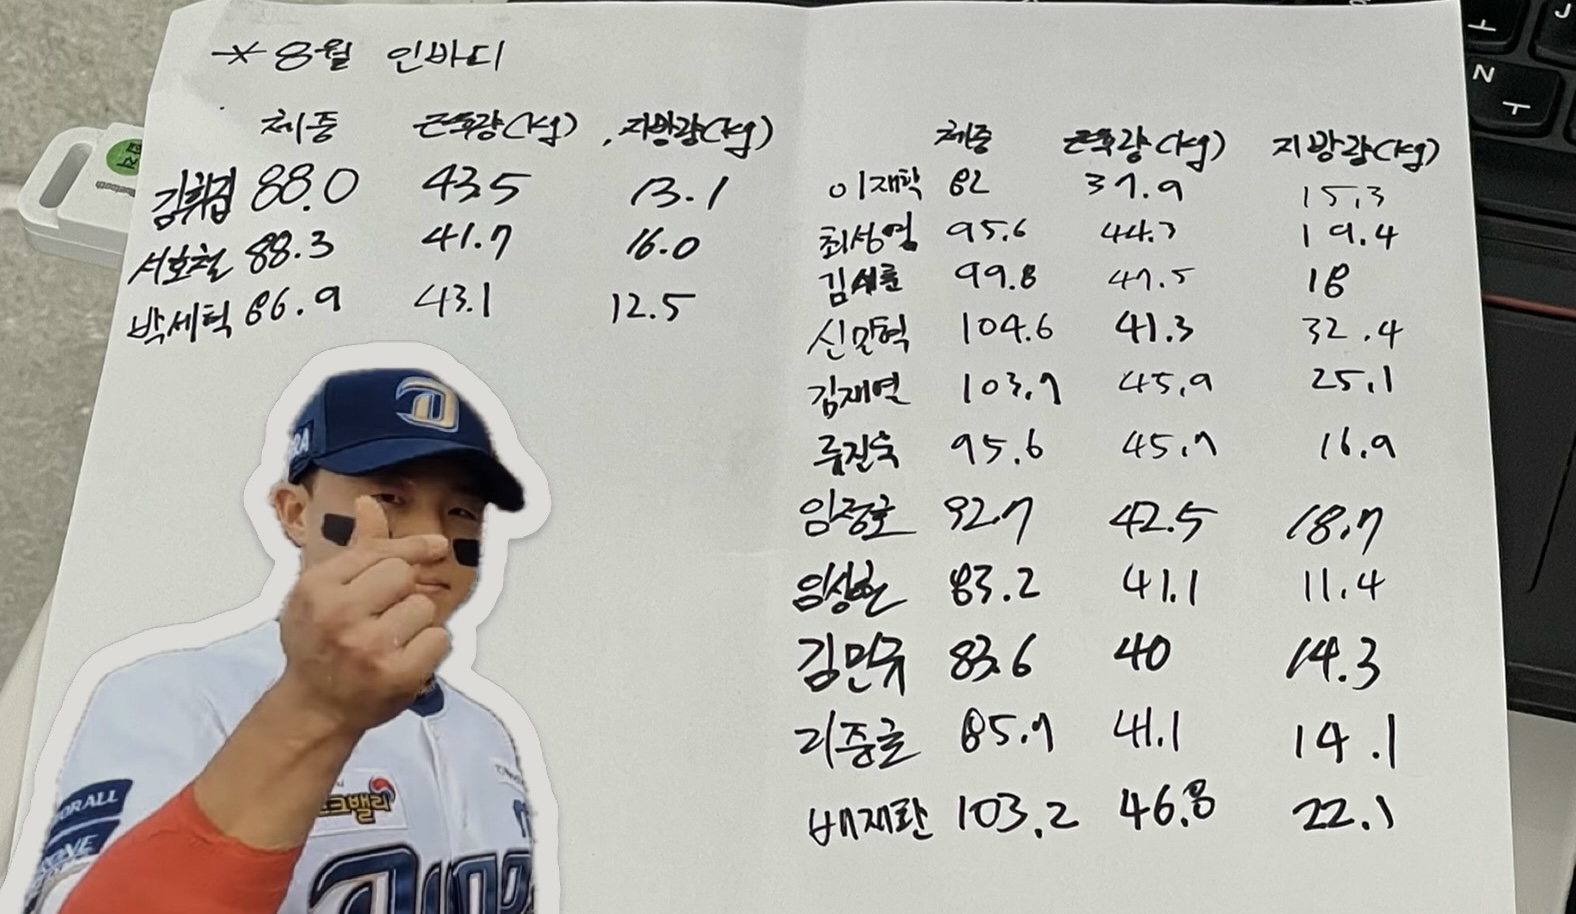 *8월 인바디
체중 근육량(kg) 지방량(kg)
김휘집 88.0 43.5 13.1
서호철 88.3 41.7 16.0
박세혁 86.9 43.1 12.5
체중 근육량(kg) 지방량(kg)
이재학 82 37.9 15.3
최성영 95.6 44.7 19.4
김시훈 99.8 47.5 18
신민혁 104.6 41.3 32.4
김재열 103.7 45.9 25.1
류진욱 95.6 45.7 16.9
임정호 92.7 42.5 18.7
임상현 83.2 41.1 11.4
김민규 83.6 40 14.3
리중글 85.7 41.1 14.1
배재환 103.2 46.8 22.1
D
ORALL
크밸리
N
ㅜ
J